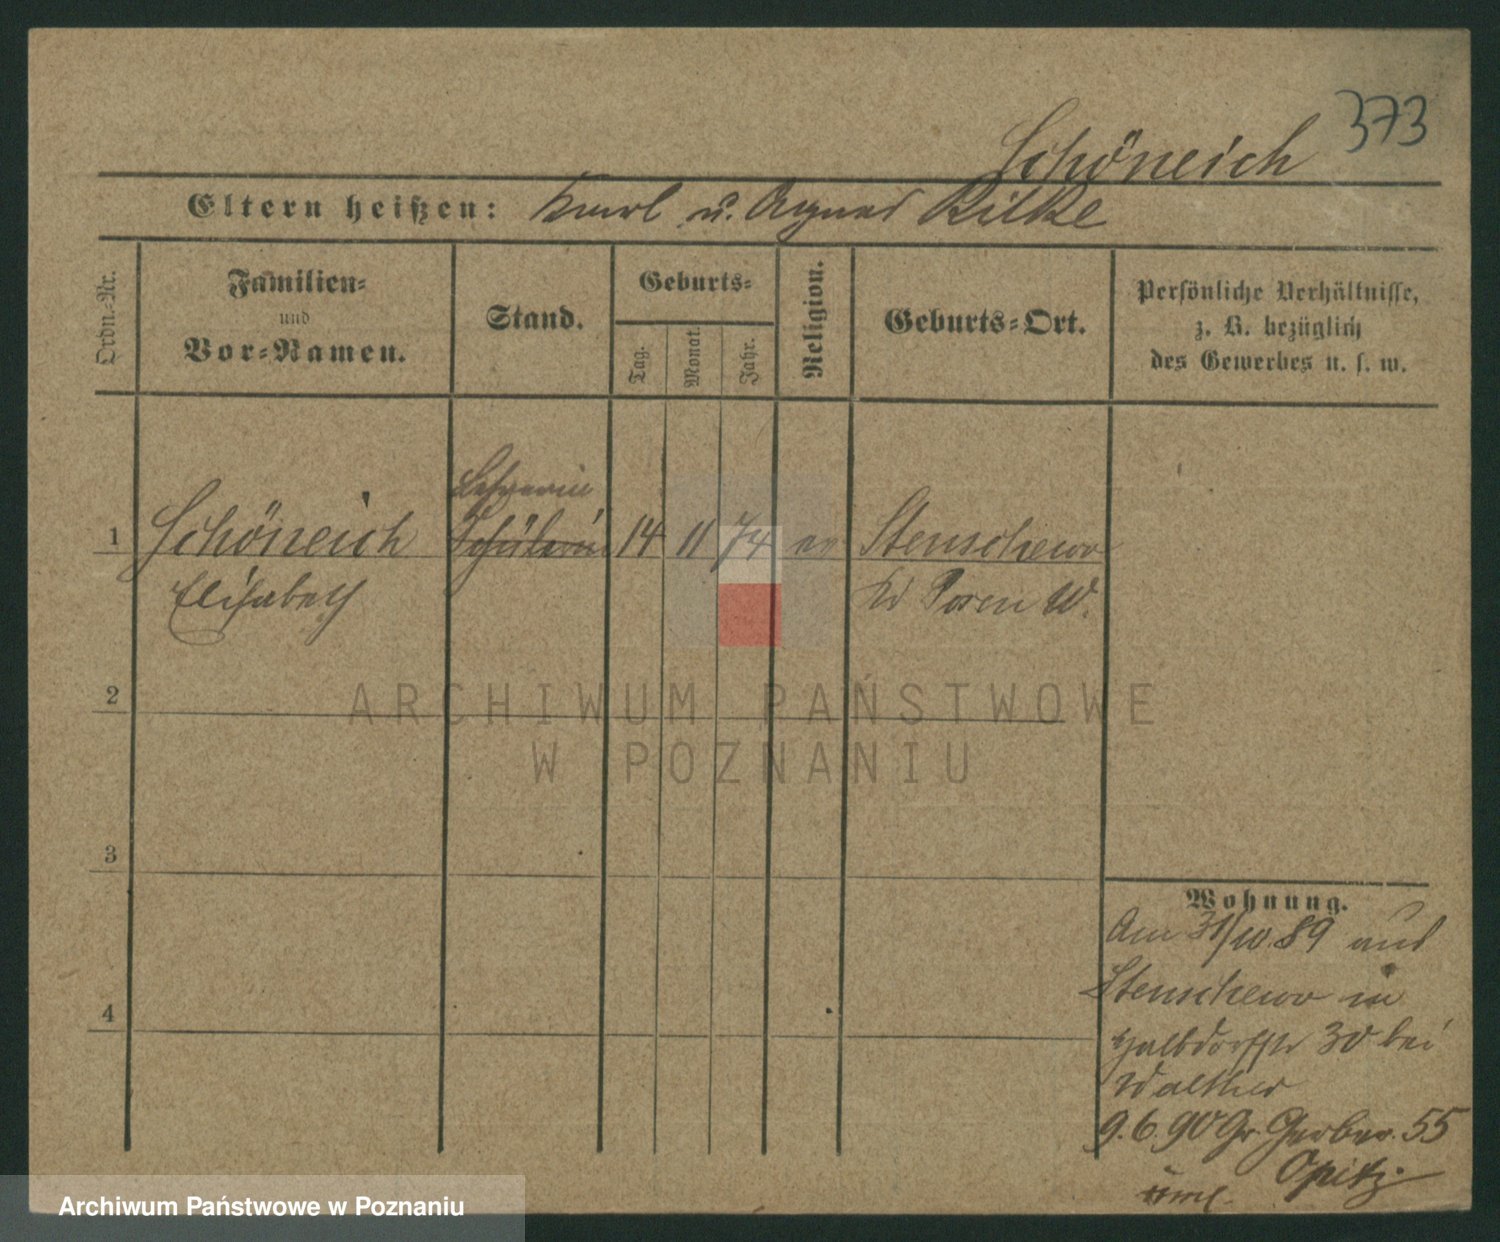 373
Schöneich
Eltern heißen: Karl u. Agnes Rilke
Ordn.-Nr.
Familien-
und
Vor-Namen.
Stand.
Geburts-
Tag.
Monat.
Jahr.
Religion.
Geburts-Ort.
Persönliche Verhältnisse,
z. B. bezüglich
des Gewerbes u. s. w.
Lehrerin
1 Schöneich Schülerin 14 11 74 ev Stenschewo
Elisabeth Kr Posen W.
2
ARCHIWUM PAŃSTWOWE
W POZNANIU
3
4
Wohnung.
Am 31/10.89 aus
Stenschewo in
Halbdorfstr 30 bei
Walther
9.6.90 Gr. Gerber. 55
Opitz
Archiwum Państwowe w Poznaniu